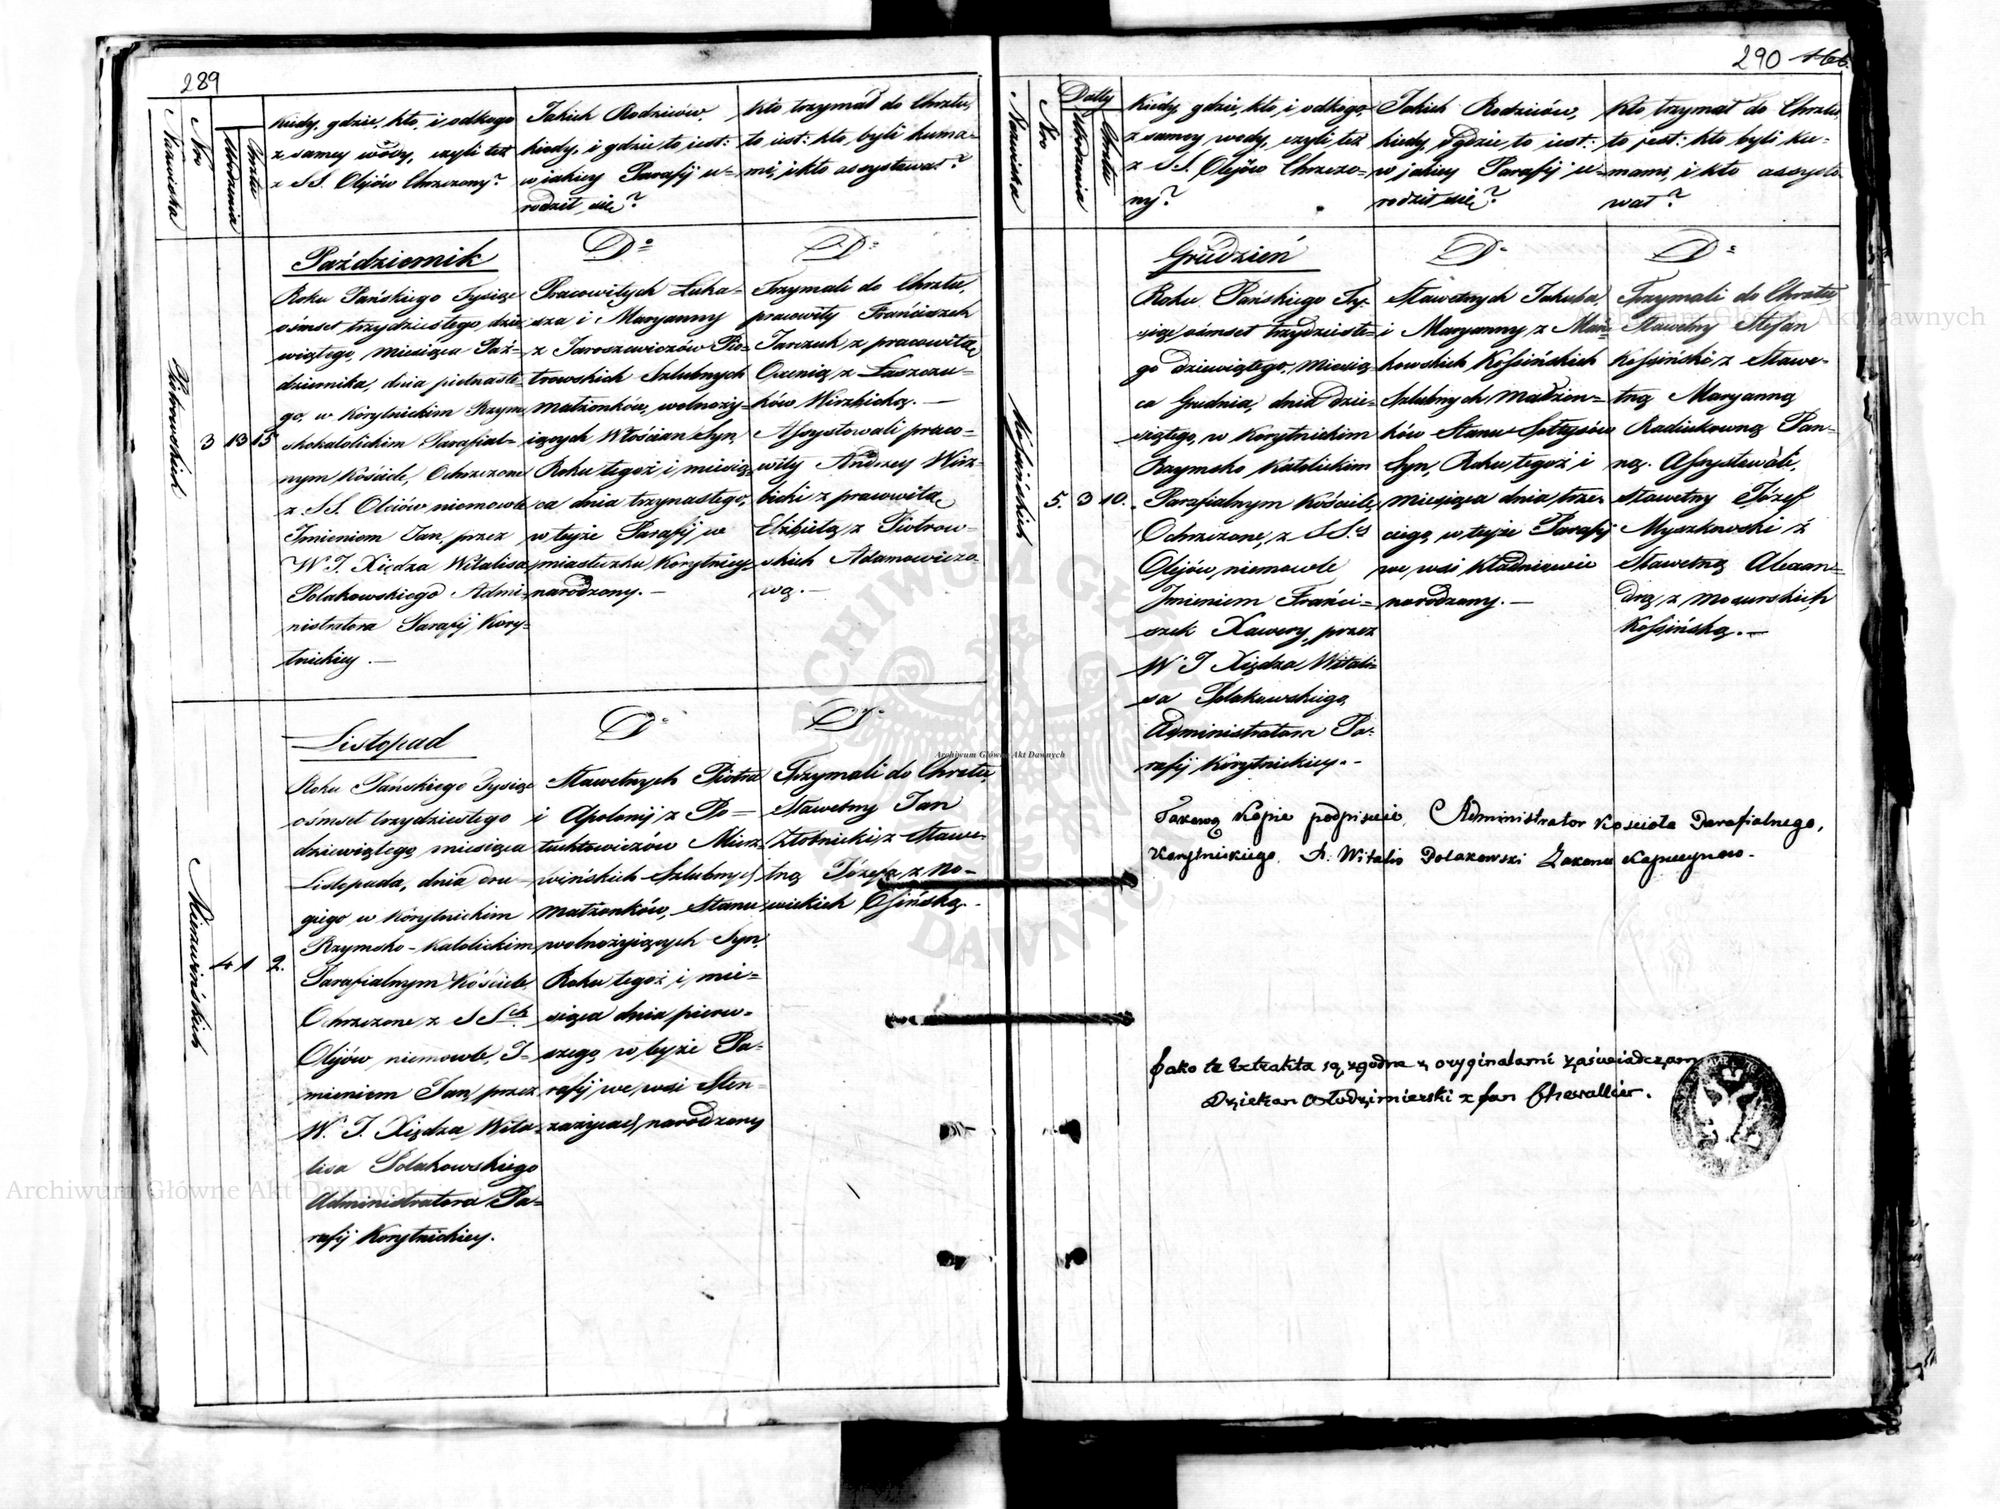 289
Nazwiska
Nro
Urodzenia
Chrztu
Kiedy, gdzie, kto, i od kogo
z samey wody, czyli też
z SS. Olejów Chrzczony?
Jakich Rodziców,
kiedy, i gdzie, to iest:
w jakiey Parafij u-
rodził się?
Kto trzymał do Chrztu,
to iest: kto, byli kuma-
mi, i kto assystował?
Październik
Do
Do
Piotrowskich
3 13 15
Roku Pańskiego Tysiąc
ośmset trzydziestego dzie
wiątego, miesiąca Paź-
dziernika, dnia piętnaste
go, w Korytnickim Rzym
skokatolickim Parafial-
nym Kościele, Ochrzczone
z SS. Oleiów niemowle
Imieniem Jan, przez
W. J. Xiędza Witalisa
Polakowskiego Admi-
nistratora Parafij Kory-
tnickiey.—
Pracowitych Łuka-
sza i Maryanny
z Jaroszewiczów Pio-
trowskich Szlubnych
małżonków, wolnoży-
iących Włościan Syn,
Roku tegoż i miesią
ca dnia trzynastego,
w teyże Parafij we
miasteczku Korytnicy
narodzony.—
Trzymali do Chrztu,
pracowity Franciszek
Jarczuk z pracowitą
Oxenią z Łaszczu-
ków Wirzbicką.—
Assystowali praco-
wity Andrzey Wirz-
bicki z pracowitą
Elżbietą z Piotrow-
skich Adamowiczo-
wą.—
Listopad
Do
Do
Mierzwińskich
4 1 2.
Roku Pańskiego Tysiąc
ośmset trzydziestego
dziewiątego miesiąca
Listopada, dnia dru-
giego w Korytnickim
Rzymsko-Katolickim
Parafialnym Kościele
Ochrzczone, z SSch
Olejów niemowle, I-
mieniem Jan, przez
W. J. Xiędza, Wita-
lisa Polakowskiego
Administratora Pa-
rafij Korytnickiey.
Sławetnych Piotra
i Apolonij z Po-
tuchtowiczów Mierz-
wińskich Szlubnych
małżonków, Stanu
wolnożyiących Syn,
Roku tegoż i mie-
siąca dnia pierw-
szego, w teyże Pa-
rafij we wsi Sten-
zarzycach, narodzony
Trzymali do Chrztu,
Sławetny Jan
Złotnicki, z Sławe-
tną Józefą z No-
wickich Osińską.-
290
Nazwiska
Nro
Daty
Urodzenia
Chrztu
Kiedy, gdzie, kto, i od kogo,
z samey wody, czyli też
z SS. Olejów Chrzczo-
ny?
Jakich Rodziców,
kiedy, Gdzie, to iest:
w jakiey Parafij u-
rodził się?
Kto, trzymał do Chrztu,
to jest: kto byli ku-
mami, i kto assysto-
wał?
Grudzień
Do
Do
Kossińskich
5. 3 10.
Roku Pańskiego Ty-
siąc ośmset trzydzieste-
go dziewiątego, miesią-
ca Grudnia, dnia dzie-
siątego, w Korytnickim
Rzymsko Katolickim
Parafialnym Kościele,
Ochrzczone, z SSch
Olejów, niemowle
Imieniem Franci-
szek Xawery, przez
W. J Xiędza Witali-
sa Polakowskiego,
Administratora Pa-
rafij Korytnickiey.-
Sławetnych Jakuba,
i Maryanny, z Mań-
kowskich Kossińskich
Szlubnych Małżon-
ków Stanu Sołtysów
Syn, Roku tegoż i
miesiąca dnia trze-
ciego, w teyże Parafij
we wsi Kładniewie
narodzony.—
Trzymali do Chrztu
Sławetny Stefan
Kossiński, z Sławe-
tną Maryanną
Radiukowną Pan-
ną. Assystowali,
Sławetny Józef
Myszkowski z
Sławetną Alexan-
drą, z Mocurskich,
Kossińską.—
Takową Kopie podpisuie, Administrator Kościoła Parafialnego,
Korytnickiego. X. Witalis Polakowski Zakonu Kapucynow-
Jako te Extrakta są zgodne z oryginałami Zaświadczam
Dziekan Włodzimierski X Jan Chevallier.
Archiwum Główne Akt Dawnych
Archiwum Główne Akt Dawnych
Archiwum Główne Akt Dawnych